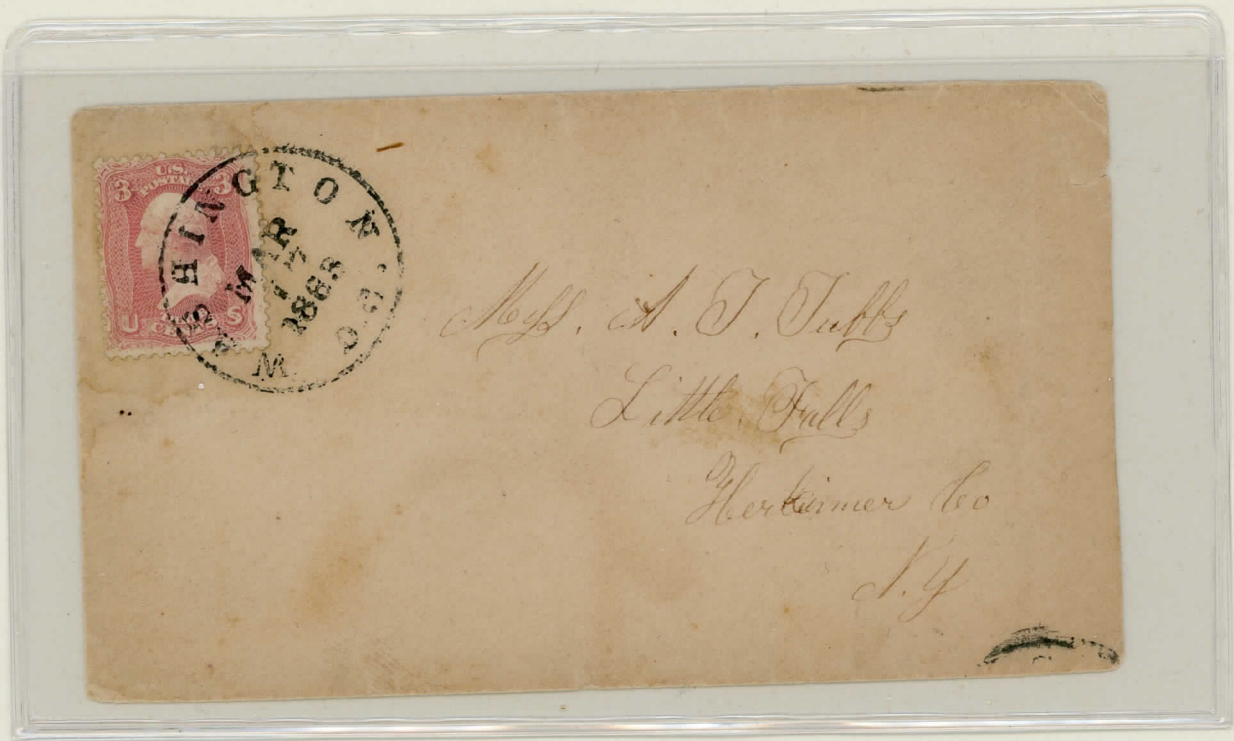 U.S.
POSTAGE
3 3
U S
CENTS
WASHINGTON. D.C.
MAR
17
1863
Miss. A. J. Tubbs
Little Falls
Herkimer Co
N.Y